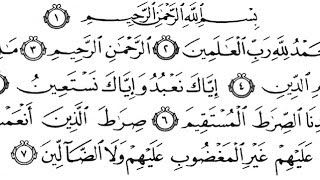 بِسْمِ ٱللَّهِ ٱلرَّحْمَٰنِ ٱلرَّحِيمِ ١
مْدُ لِلَّهِ رَبِّ ٱلْعَٰلَمِينَ ٢ ٱلرَّحْمَٰنِ ٱلرَّحِيمِ ٣ مَٰلِ
ٱلدِّينِ ٤ إِيَّاكَ نَعْبُدُ وَإِيَّاكَ نَسْتَعِينُ
دِنَا ٱلصِّرَٰطَ ٱلْمُسْتَقِيمَ ٦ صِرَٰطَ ٱلَّذِينَ أَنْعَمْ
عَلَيْهِمْ غَيْرِ ٱلْمَغْضُوبِ عَلَيْهِمْ وَلَا ٱلضَّآلِّينَ ٧